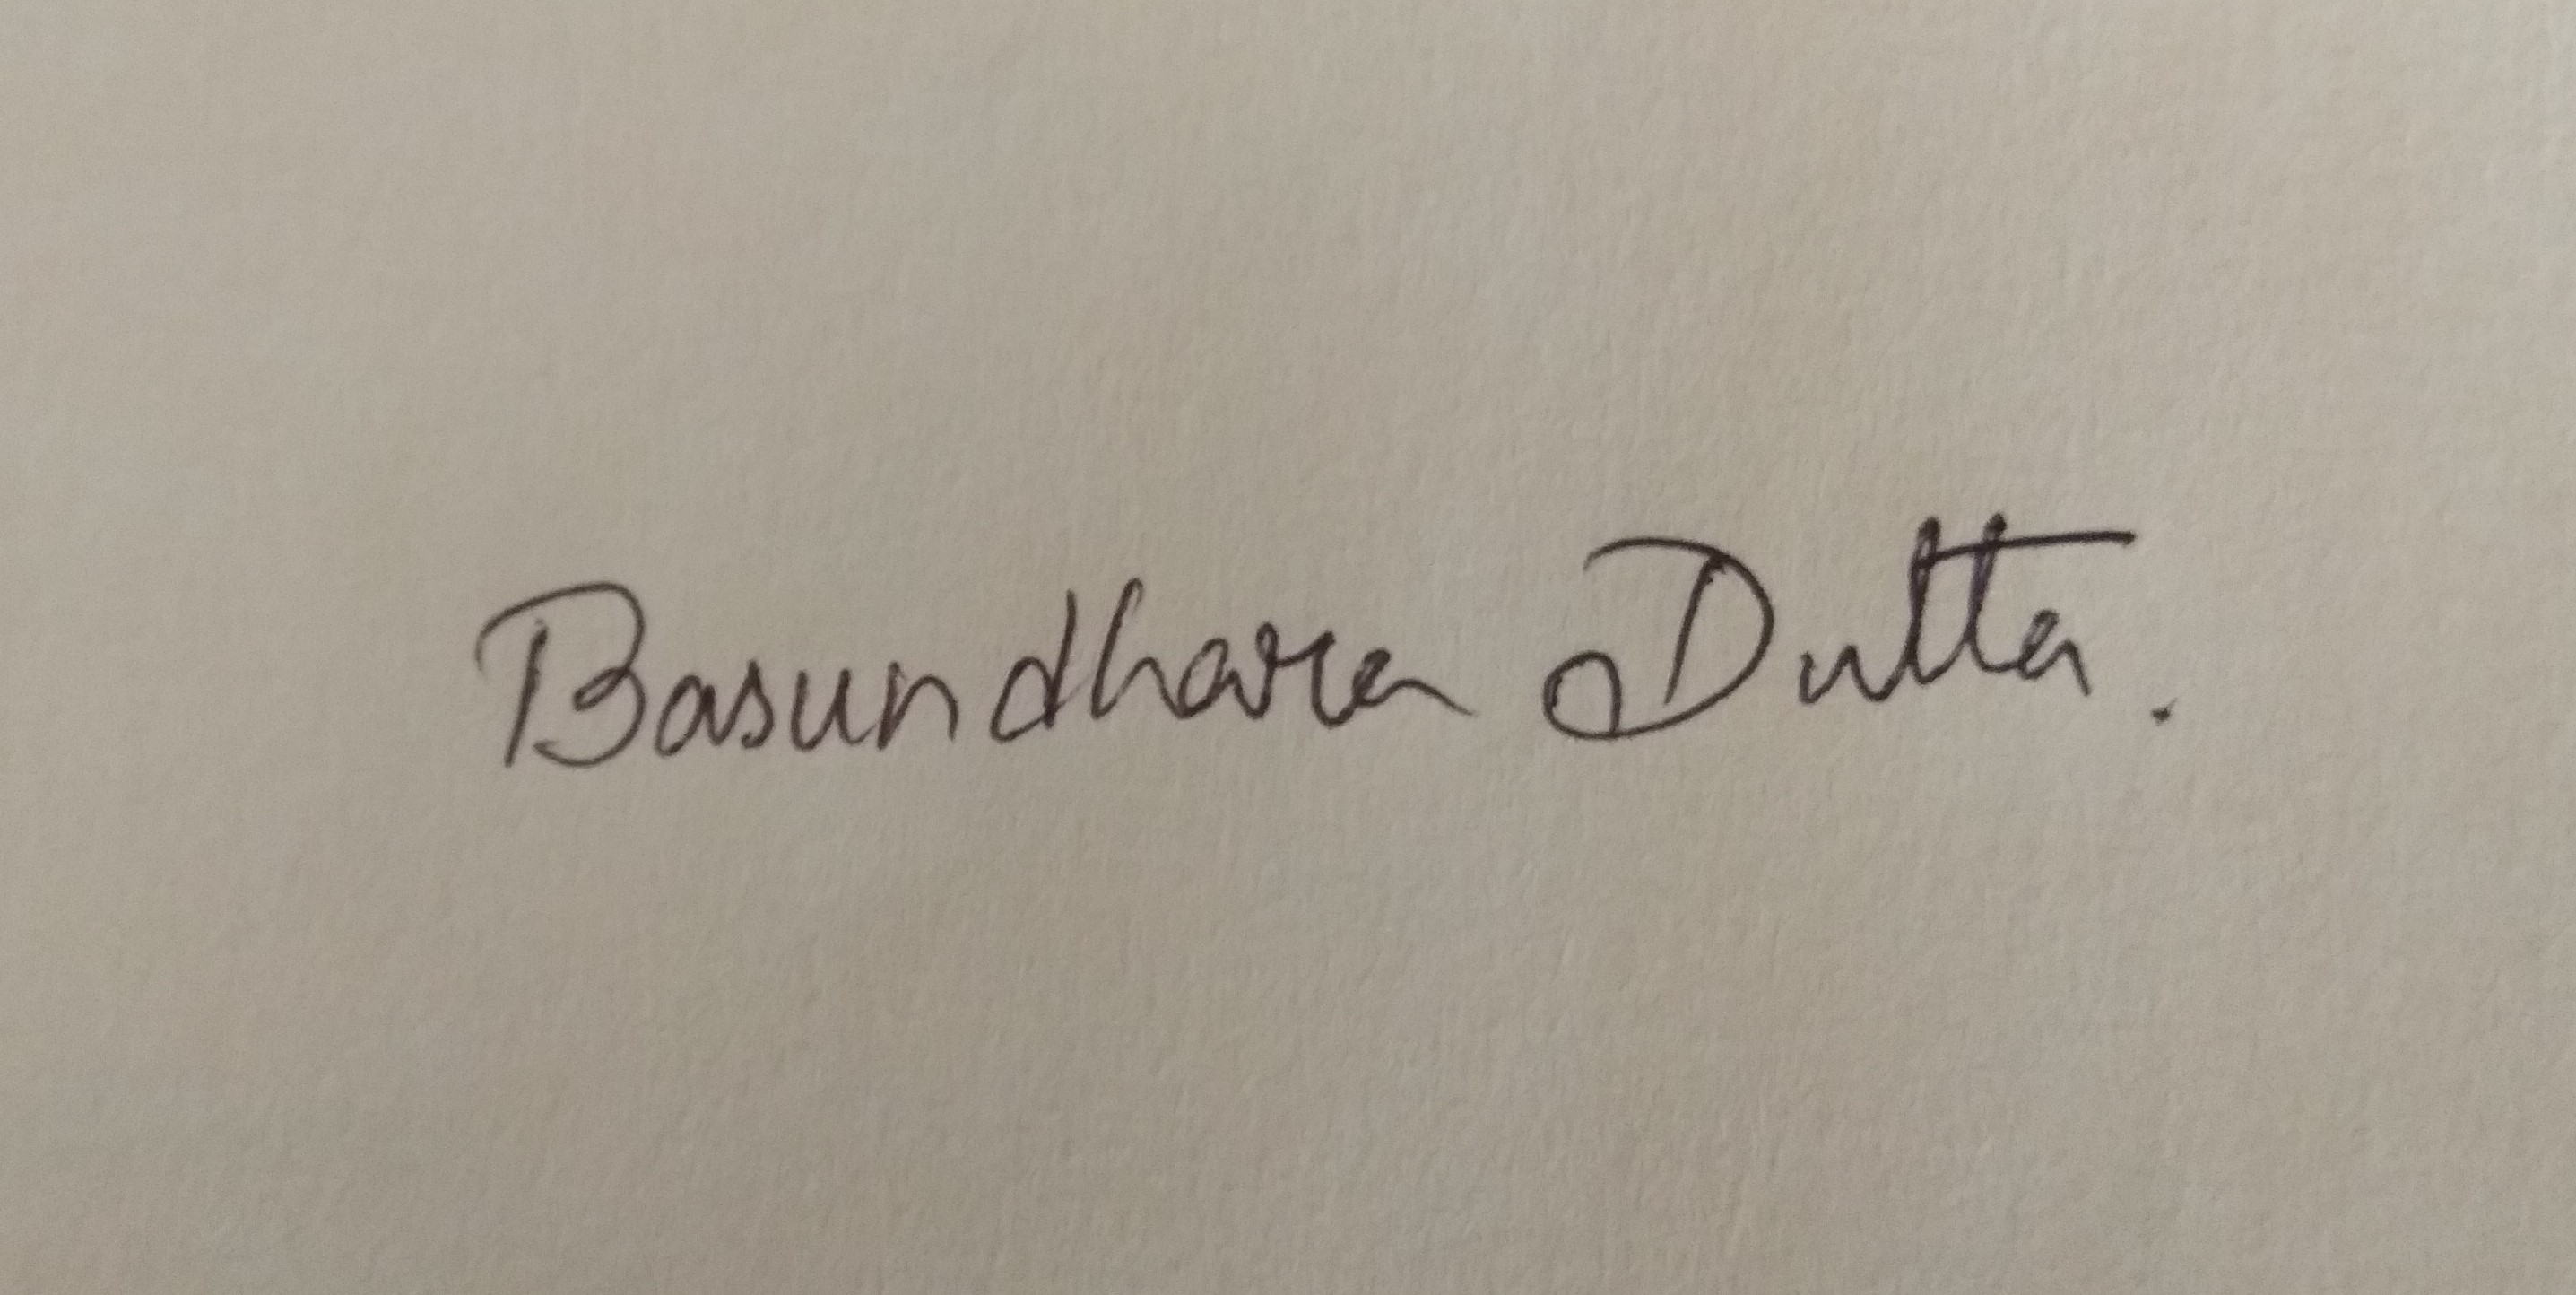 Basundhara Dutta.